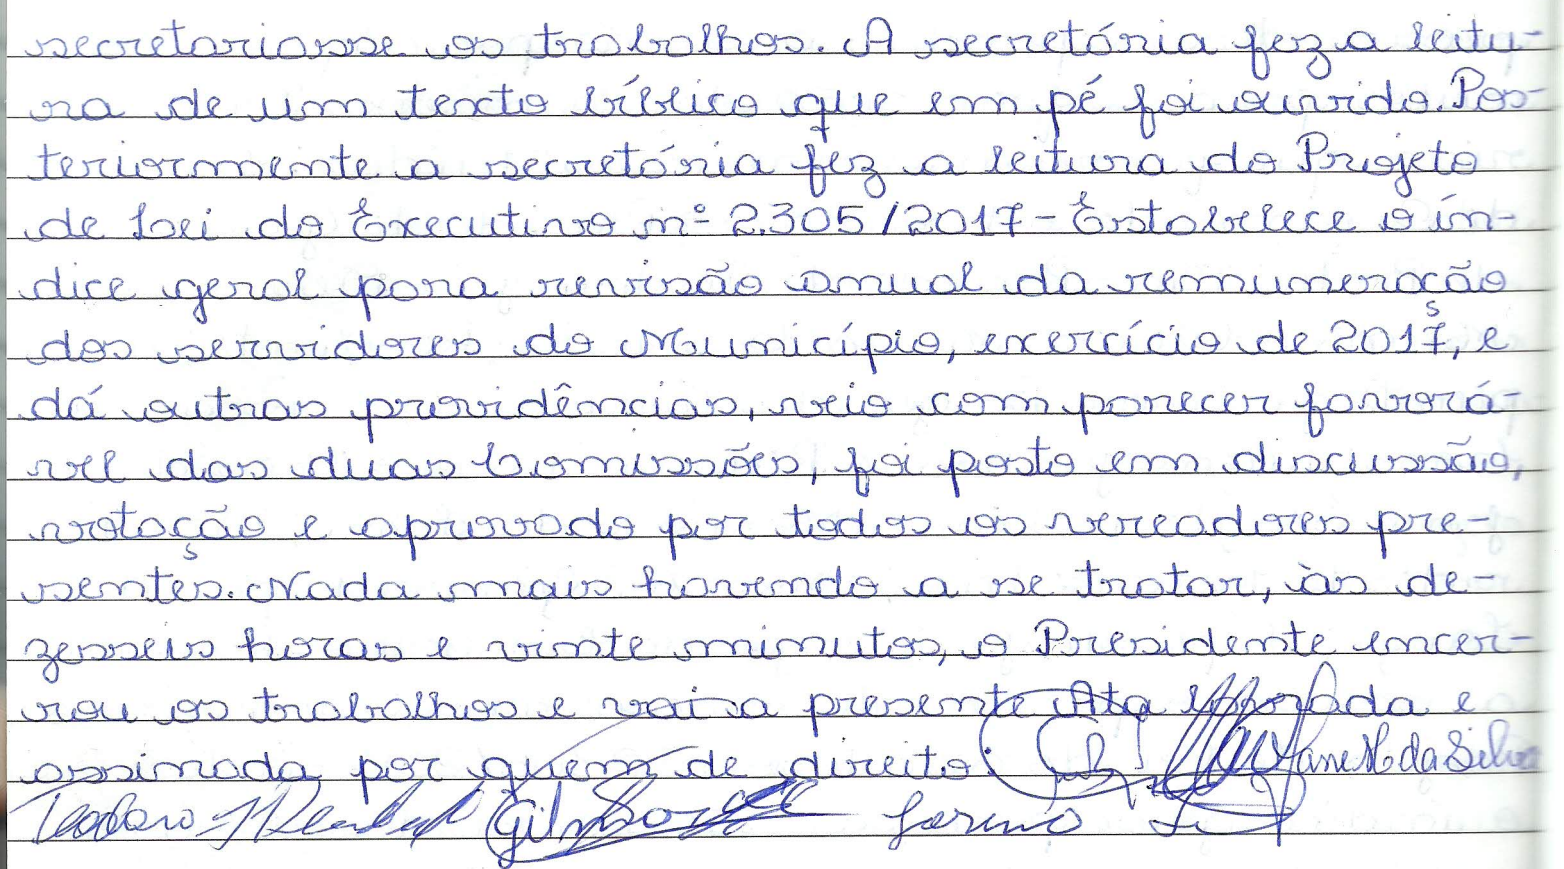 secretariasse os trabalhos. A secretária fez a leitu-
ra de um texto bíblico que em pé foi ouvido. Pos-
teriormente a secretária fez a leitura do Projeto
de Lei do Executivo nº 2.305/2017 - Estabelece o ín-
dice geral para revisão anual da remuneração
dos servidores do Município, exercício de 2017, e
dá outras providências, veio com parecer favorá-
vel das duas Comissões, foi posto em discussão,
votação e aprovado por todos os vereadores pre-
sentes. Nada mais havendo a se tratar, às de-
zesseis horas e vinte minutos, o Presidente encer-
rou os trabalhos e vai a presente Ata aprovada e
assinada por quem de direito. Jane M da Silva
Teodoro